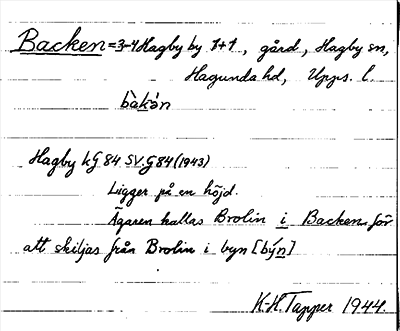 Backen = 3-4 Hagby by 1+1, gård, Hagby sn,
Hagunda hd, Upps. l.
bàkán
Hagby kG 84 SV. G 84 (1943)
Ligger på en höjd.
Ägaren kallas Brolin i Backen för
att skiljas från Brolin i byn [býn]
K-H. Tapper 1944.